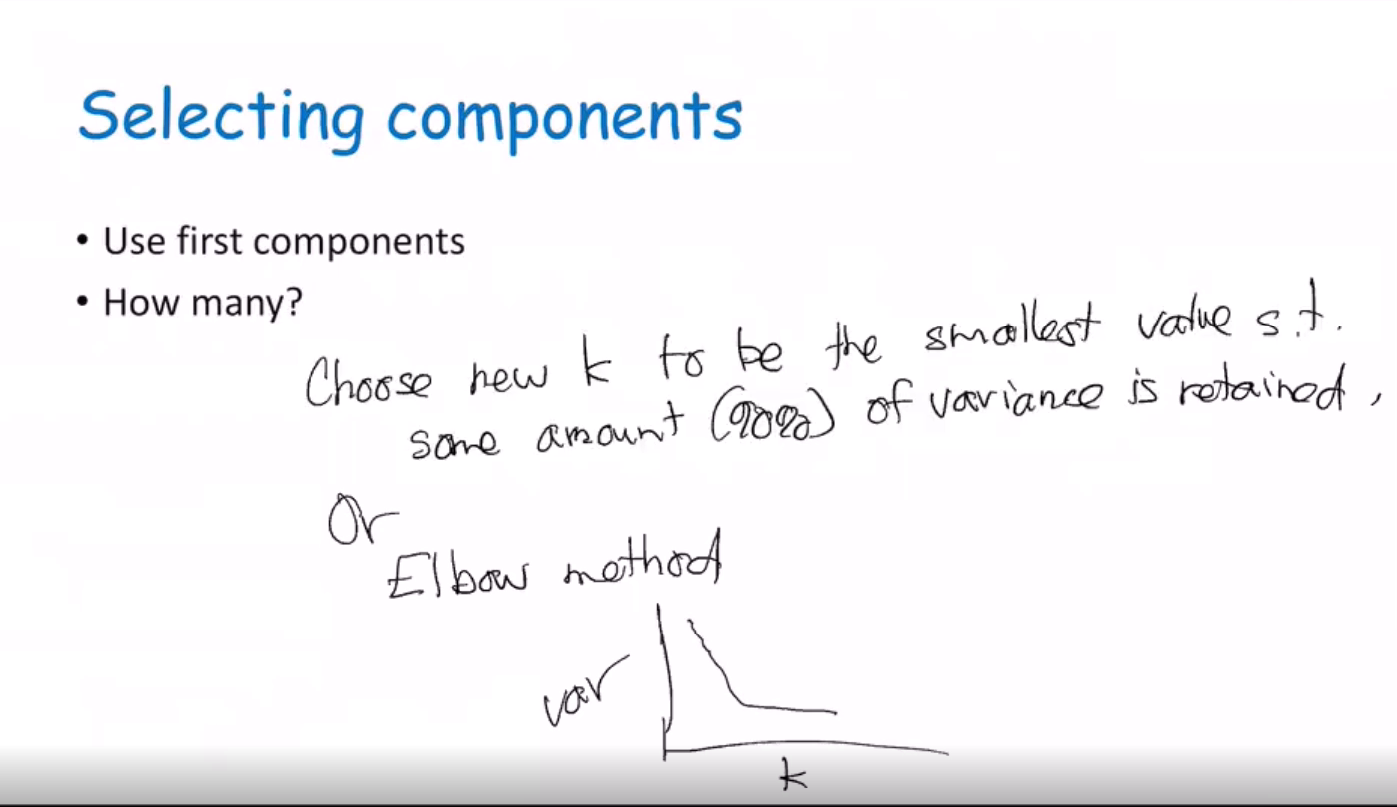 Selecting components
• Use first components
• How many?
Choose new k to be the smallest value s.t.
some amount (90%) of variance is retained,
Or
Elbow method
var
k